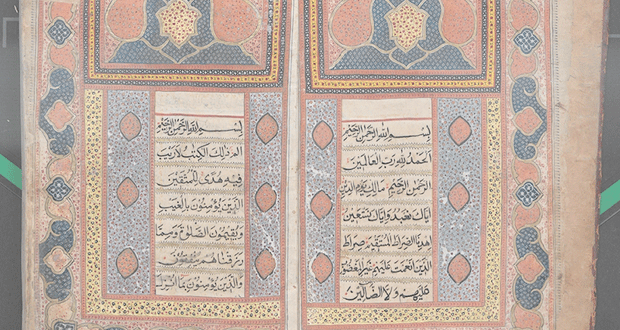 بسم الله الرحمن الرحيم
الحمد لله رب العالمين
الرحمن الرحيم مالك يوم الدين
اياك نعبد واياك نستعين
اهدنا الصراط المستقيم صراط
الذين انعمت عليهم غير المغضوب
عليهم ولا الضالين
بسم الله الرحمن الرحيم
الم ذلك الكتب لا ريب
فيه هدى للمتقين
الذين يؤمنون بالغيب
ويقيمون الصلوة ومما
رزقناهم ينفقون
والذين يؤمنون بما انزل